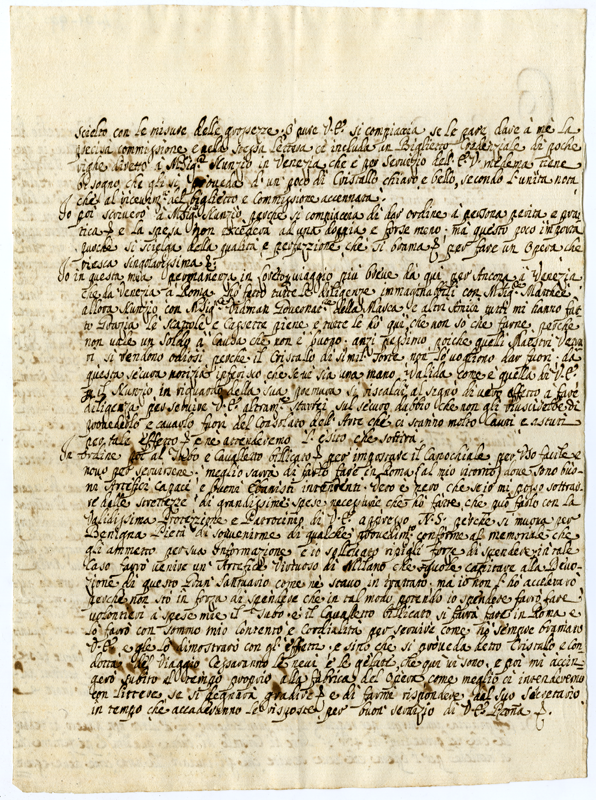 scielto con le misure delle grossezze. O pure V.E. si compiaccia se le pare dare à me la
precisa commissione, e nella stessa lettera ci includa un Biglietto Credenziale di poche
righe diretto à Mõsig.r Nunzio in Venezia, che è per servizio dell'E.V. medema tiene
bisogno che gli si proveda d'un poco di Cristallo chiaro e bello, secondo l'unita nota
che al ricevim.to del biglietto e Commissione accennata.
Io poi scriverò à Mõsig.r Nunzio, perche si compiaccia di dar ordine à persona perita, e pra
tica, e la spesa non eccederà ad una doppia e forse meno; ma questo poco importa
purche si scielga della qualità e perfezzione che si brama per fare un Opera che
riesca singolarissima.
Io in questa mia permanenza in Loreto viaggio più breve da qui per Ancona à Venezia,
che da Venezia à Roma ho fatto tutte le diligenze immaginabili con Mõsig.r
allora Nunzio con Mõsig.r Vidman Governat.re della Marca, et altri Amici tutti mi hanno fat
to le scattole e Cassette piene, e tutte le hò qui che non so che farne, perche
non vale un soldo à causa che non è buono, anzi pessimo, poiche quelli Maestri Vetra
ri si rendono odiosi, perche il Cristallo di simil sorte non lo vogliono dar fuori; da
questa sicura notizia inferisco che se vi sia una mano valida come è quella di V.E.
il Nunzio in riguardo della sua premura si riscaldi al segno di vero affetto à fare
diligenza per servire V.E. altram.te starei sul sicuro dubio che non gli riuscirebbe di
provederlo e cavarlo fuori del Consolato dell'Arte che ci stanno molto Cauti e astuti
per tale effetto, e ne attenderemo l'esito che sortirà.
In ordine poi al Tubo e Cavalletto Ottico per impostare il Canochiale per uso facile e
novo per servirsene, meglio sarà di farlo fare in Roma (al mio ritorno) dove sono buo
ni Artefici capaci, e buoni Ebanisti intendenti. Vero è però, che se io mi posso sottrar
re dalle strettezze di grandissime spese necessarie che hò fatte, che può farlo con la
Validissima Protezzione, e Patrocinio di V.E. appresso N.S. perche si muova per
Benigna Pietà di sovenirme di qualche provedim.to conforme al memoriale che
gli ammetto per sua Informazione, e io sollevato ripigli forze di spendere in tale
caso farrò venire un Artefice Virtuoso di Milano che vuole capitare alla Devo
zione di questo Gran Santuario come ne stavo in trattato, ma io non l'hò accelerato
perche non stò in forza di spendere che in tal modo potendo io spendere farrò fare
volontieri à spese mie il Tubo, e il Cavalletto Otticato si farrà fare in Roma, e
lo farrò con sommo mio contento e Cordialità per servire come hò sempre bramato
V.E. e glie lo dimostrarò con gl'effetti, e sino che si proveda detto Cristallo, e Con
dotta del Viaggio cessaranno le nevi e le gelate che qui vi sono, e poi mi accin
gerò subito al tempo proprio alla fabrica del Opera come meglio ci intenderemo
con littere, se si degnarà gradire, e di farmi rispondere dal suo Secretario
in tempo che accaderanno le risposte per buon servizio di V.E. Padrona.